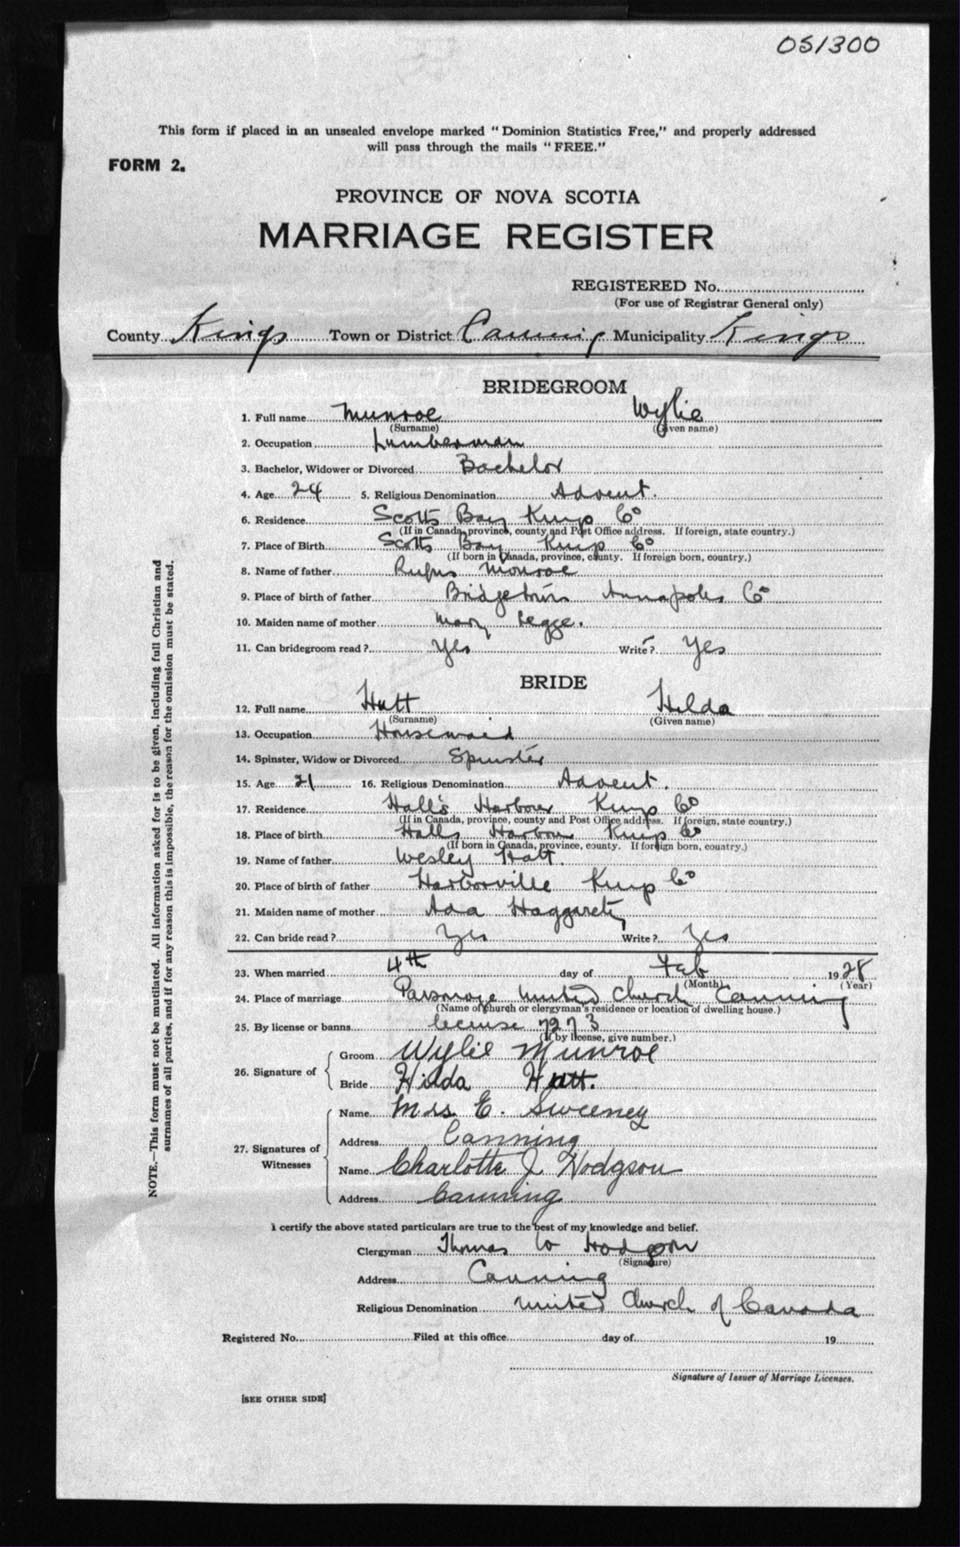 051300
This form if placed in an unsealed envelope marked "Dominion Statistics Free," and properly addressed
will pass through the mails "FREE."
FORM 2.
PROVINCE OF NOVA SCOTIA
MARRIAGE REGISTER
REGISTERED No.
(For use of Registrar General only)
County Kings Town or District Canning Municipality Kings
BRIDEGROOM
1. Full name Munroe Wylie
(Surname) (Given name)
2. Occupation Lumberman
3. Bachelor, Widower or Divorced Bachelor
4. Age 24 5. Religious Denomination Advent.
6. Residence Scotts Bay Kings Co
(If in Canada, province, county and Post Office address. If foreign, state country.)
7. Place of Birth Scotts Bay Kings Co
(If born in Canada, province, county. If foreign born, country.)
8. Name of father Rufus Monroe
9. Place of birth of father Bridgetown Annapolis Co
10. Maiden name of mother Mary Legge.
11. Can bridegroom read? Yes Write? Yes
BRIDE
12. Full name Hatt Hilda
(Surname) (Given name)
13. Occupation Housemaid
14. Spinster, Widow or Divorced Spinster
15. Age 21 16. Religious Denomination Advent.
17. Residence Hall's Harbour Kings Co
(If in Canada, province, county and Post Office address. If foreign, state country.)
18. Place of birth Halls Harbour Kings Co
(If born in Canada, province, county. If foreign born, country.)
19. Name of father Wesley Hatt.
20. Place of birth of father Harborville Kings Co
21. Maiden name of mother Ada Haggarety
22. Can bride read? Yes Write? Yes
23. When married 4th day of Feb 1928
(Month) (Year)
24. Place of marriage Parsonage United Church Canning
(Name of church or clergyman's residence or location of dwelling house.)
25. By license or banns license 7273
(If by license, give number.)
26. Signature of Groom Wylie Munroe
Bride Hilda Hatt.
27. Signatures of Witnesses Name Mrs. E. Sweeney
Address Canning
Name Charlotte J Hodgson
Address Canning
I certify the above stated particulars are true to the best of my knowledge and belief.
Clergyman Thomas W Hodgson
(Signature)
Address Canning
Religious Denomination United Church of Canada
Registered No. Filed at this office day of 19
Signature of Issuer of Marriage Licenses.
[SEE OTHER SIDE]
NOTE.—This form must not be mutilated. All information asked for is to be given, including full Christian and
surnames of all parties, and if for any reason this is impossible, the reason for the omission must be stated.